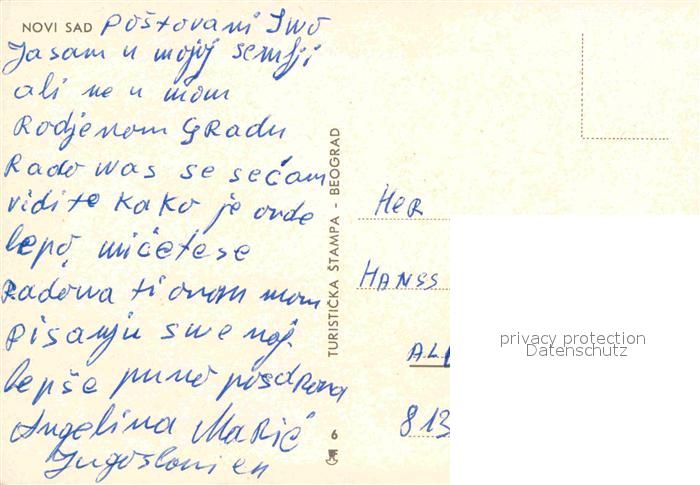 NOVI SAD Poštovani Iwo
Ja sam u mojoj semlji
ali ne u mom
Rodjenom GRadu
Rado was se sećam
vidite kako je ovde
lepo, mićetese
Radowa ti ovom mom
pisanju swe naj.
lepše puno posdRava
Angelina MaRić
Jugoslavien
TURISTIČKA ŠTAMPA - BEOGRAD
6
HeR
HANSS
AL
813
privacy protection
Datenschutz